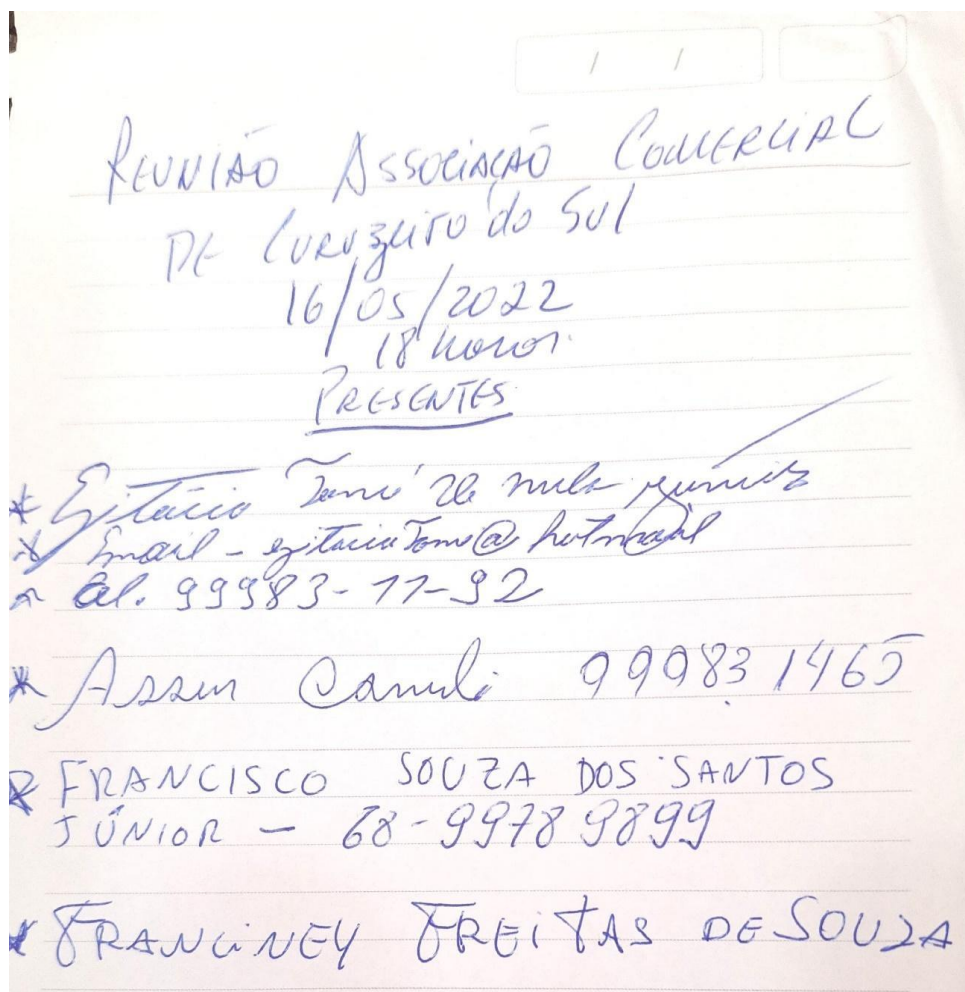 / /
REUNIÃO ASSOCIAÇÃO COMERCIAL
DE CURUZEIRO do SUL
16/05/2022
18 horas.
PRESENTES
* Epitácio Tomé de
* Email - epitacioTome@hotmail
Cel. 99983-11-92
* Assen 999831465
* FRANCISCO SOUZA DOS SANTOS
JÚNIOR - 68-99789899
* FRANCINEY FREITAS DE SOUZA